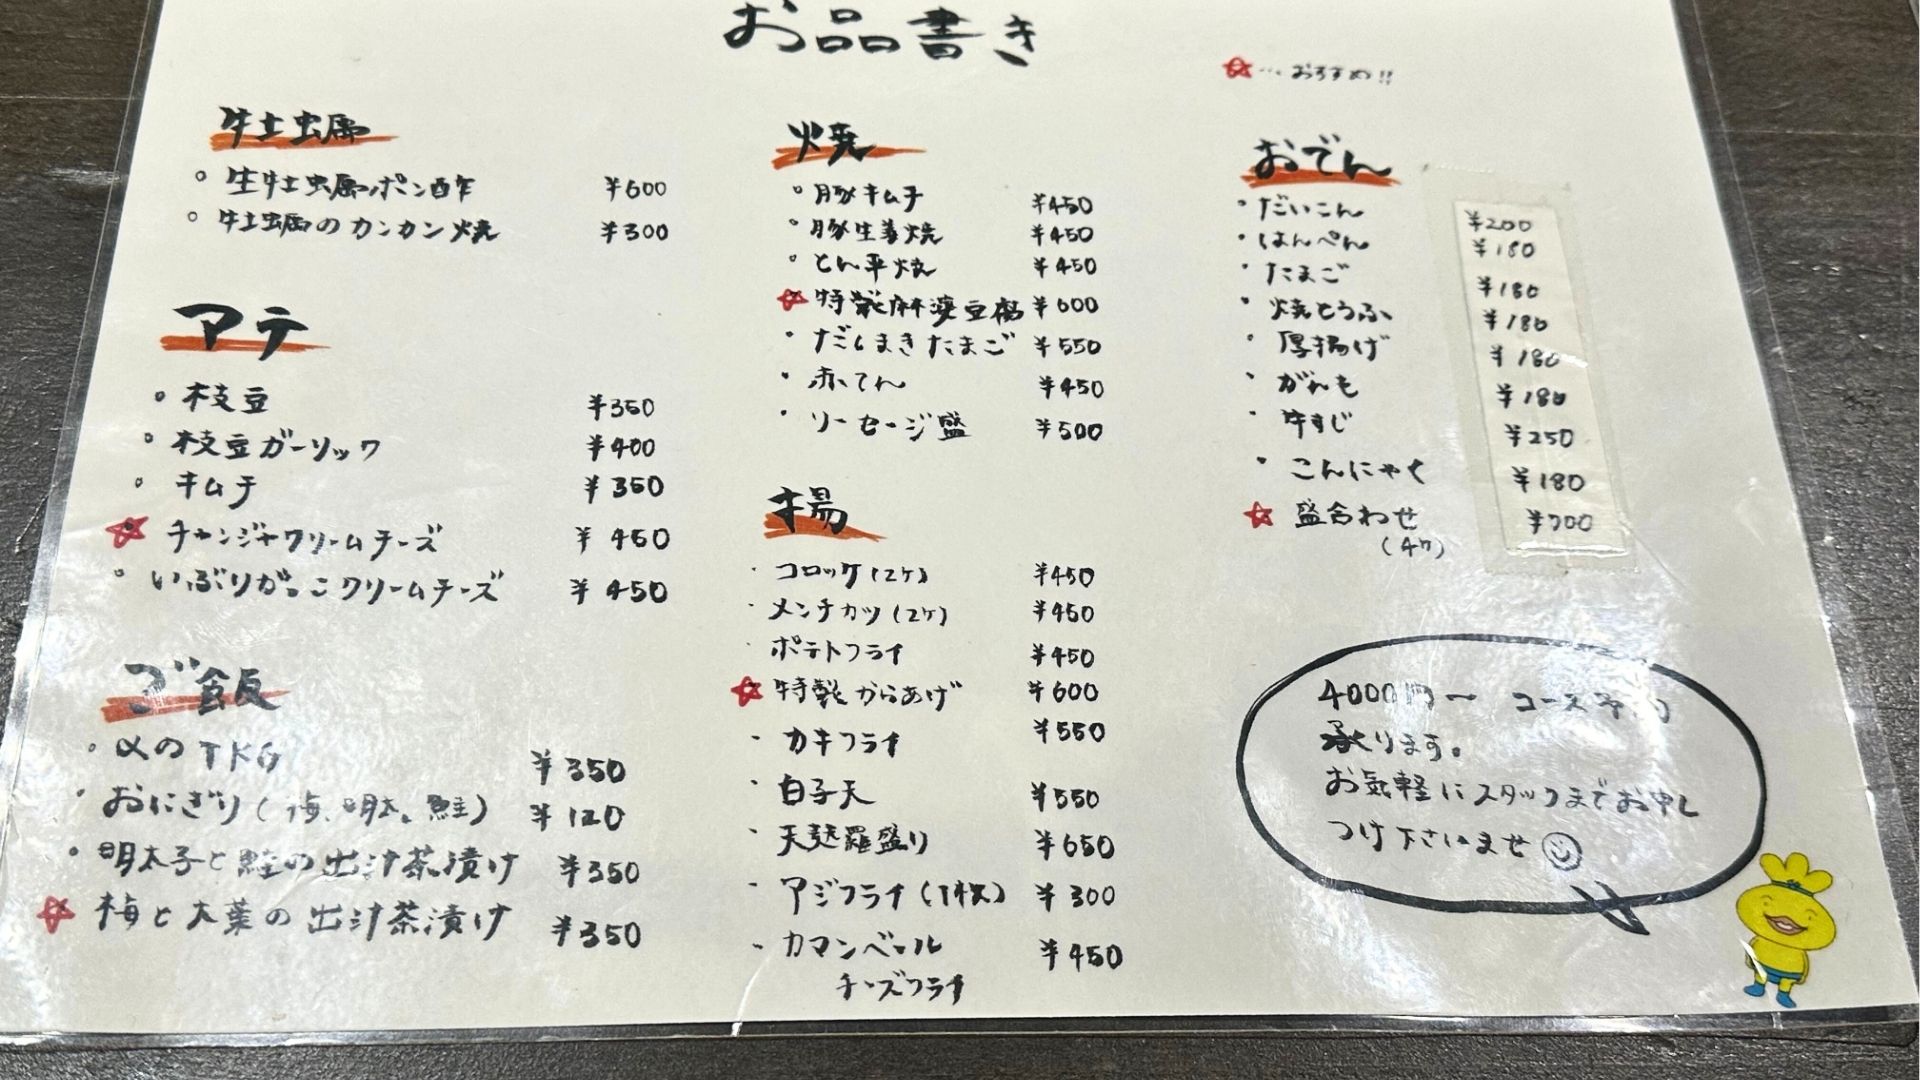 お品書き
☆…おすすめ!!
牡蛎
・生牡蛎ポン酢 ¥600
・牡蛎のカンカン焼 ¥300
アテ
・枝豆 ¥350
・枝豆ガーリック ¥400
・キムチ ¥350
☆チャンジャクリームチーズ ¥450
・いぶりがっこクリームチーズ ¥450
ご飯
・αのTKG ¥350
・おにぎり(梅、明太、鮭) ¥120
・明太子と鮭の出汁茶漬け ¥350
☆梅と大葉の出汁茶漬け ¥350
焼
・豚キムチ ¥450
・豚生姜焼 ¥450
・とん平焼 ¥450
☆特製麻婆豆腐 ¥600
・だしまきたまご ¥550
・赤てん ¥450
・ソーセージ盛 ¥500
揚
・コロッケ(2ケ) ¥450
・メンチカツ(2ケ) ¥450
・ポテトフライ ¥450
☆特製からあげ ¥600
・カキフライ ¥550
・白子天 ¥550
・天麩羅盛り ¥650
・アジフライ(1枚) ¥300
・カマンベール ¥450
チーズフライ
おでん
・だいこん ¥200
・はんぺん ¥180
・たまご ¥180
・焼とうふ ¥180
・厚揚げ ¥180
・がんも ¥180
・牛すじ ¥250
・こんにゃく ¥180
☆盛合わせ ¥700
(4ケ)
4000円〜 コース予約
承ります。
お気軽にスタッフまでお申し
つけ下さいませ